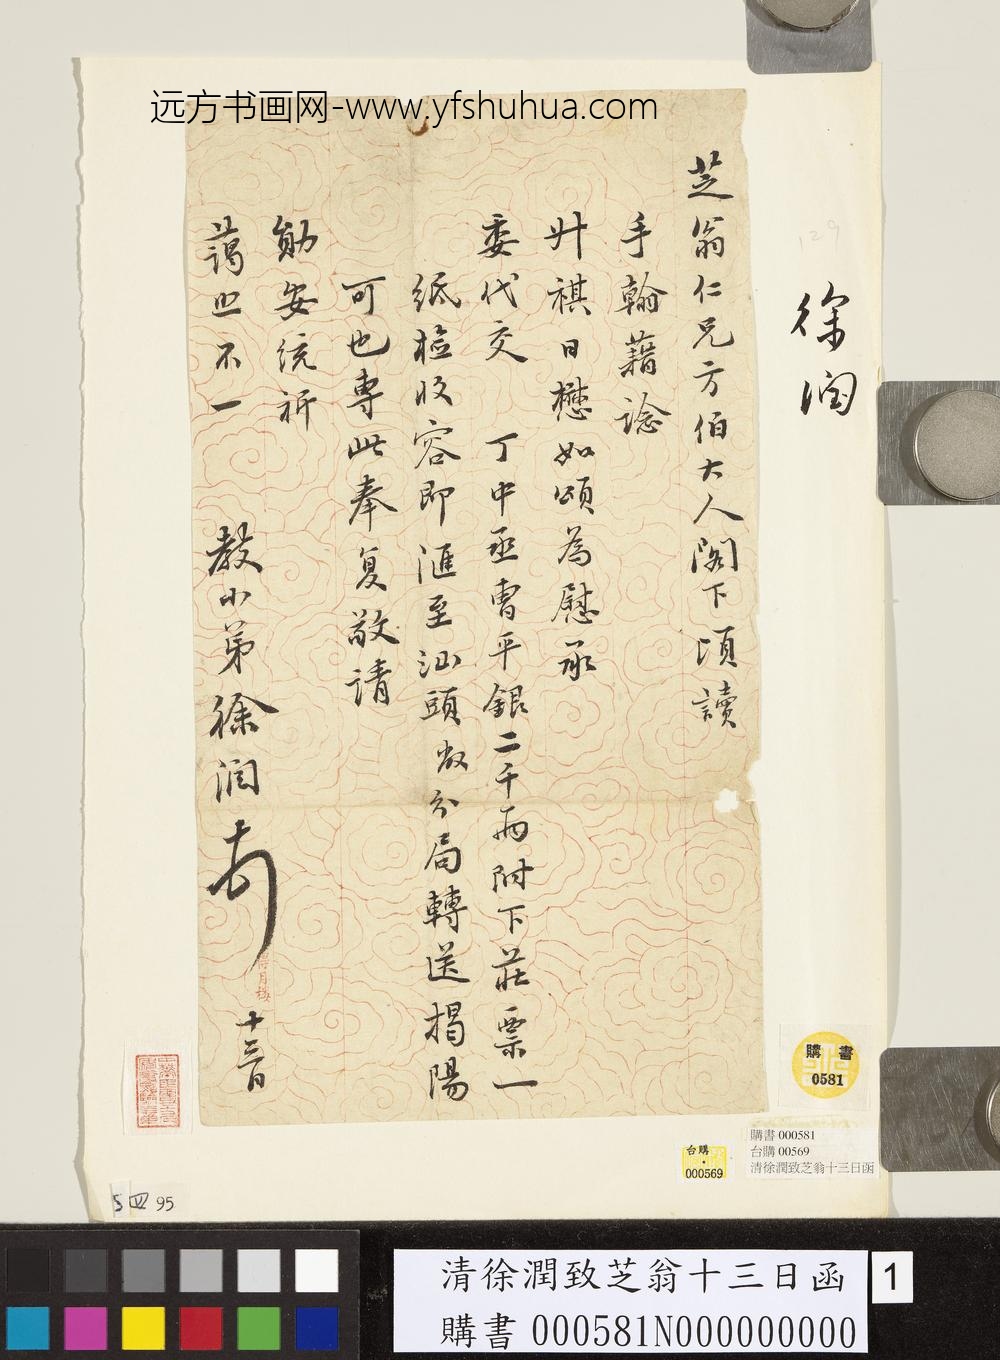 远方书画网-www.yfshuhua.com
129
徐润
芝翁仁兄方伯大人阁下頃讀
手翰藉諗
升祺日懋如頌為慰承
委代交 丁中丞曹平銀二千両附下莊票一
紙檢收容即滙至汕頭敝分局轉送揭陽
可也專此奉复敬請
勛安統祈
藹照不一 教小弟徐潤
十三日
購書
0581
購書 000581
台購 00569
清徐潤致芝翁十三日函
台購
000569
95
清徐潤致芝翁十三日函
購書 000581N000000000
1